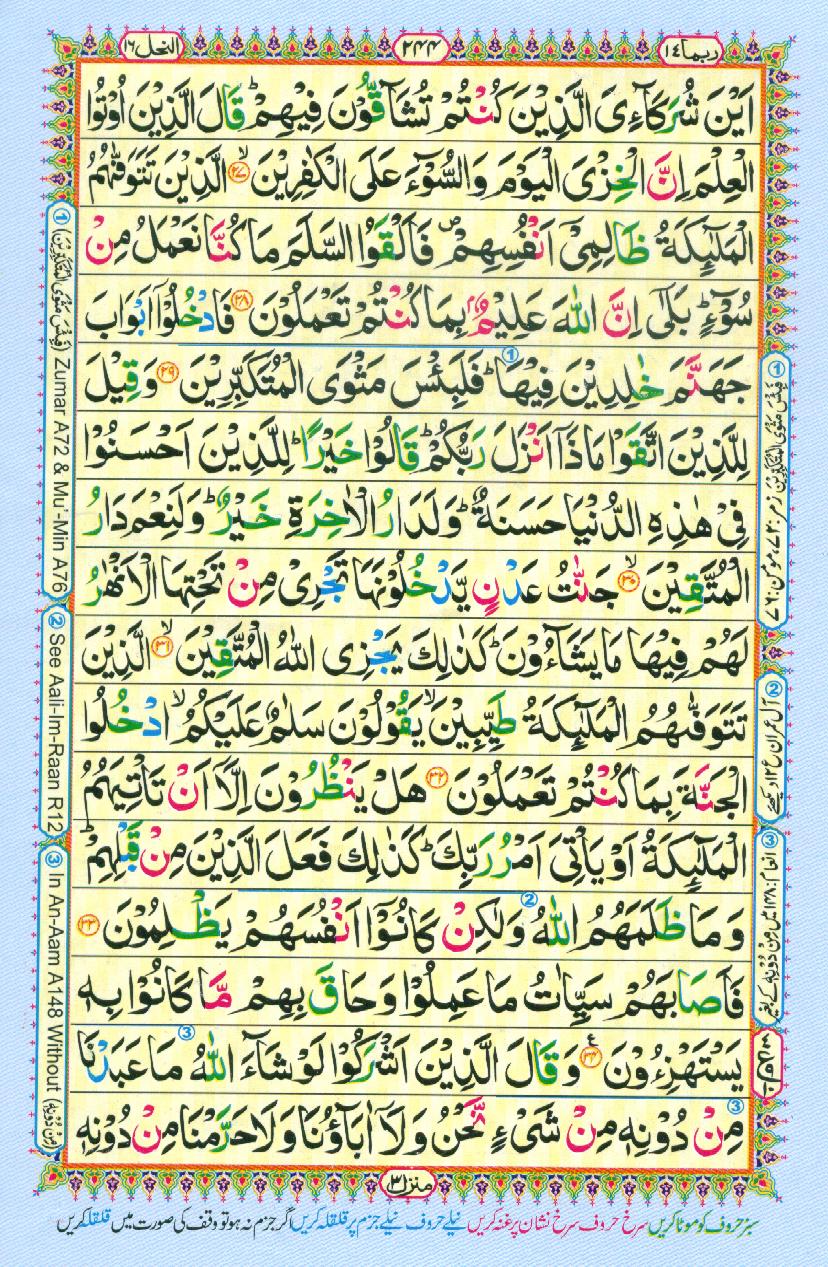 ربما ١٤
٢٤٤
النحل ١٦
اَيْنَ شُرَكَآءِيَ الَّذِيْنَ كُنْتُمْ تُشَآقُّوْنَ فِيْهِمْ ؕ قَالَ الَّذِيْنَ اُوْتُوا
الْعِلْمَ اِنَّ الْخِزْيَ الْيَوْمَ وَالسُّوْٓءَ عَلَى الْكٰفِرِيْنَ ۙ‏﴿۲۷﴾ الَّذِيْنَ تَتَوَفّٰىهُمُ
الْمَلٰٓئِكَةُ ظَالِمِيْٓ اَنْفُسِهِمْ ۪ فَاَلْقَوُا السَّلَمَ مَا كُنَّا نَعْمَلُ مِنْ
سُوْٓءٍ ؕ بَلٰٓى اِنَّ اللّٰهَ عَلِيْمٌۢ بِمَا كُنْتُمْ تَعْمَلُوْنَ ﴿۲۸﴾ فَادْخُلُوْٓا اَبْوَابَ
جَهَنَّمَ خٰلِدِيْنَ فِيْهَا ؕ ① فَلَبِئْسَ مَثْوَى الْمُتَكَبِّرِيْنَ ﴿۲۹﴾ وَقِيْلَ
لِلَّذِيْنَ اتَّقَوْا مَاذَآ اَنْزَلَ رَبُّكُمْ ؕ قَالُوْا خَيْرًا ؕ لِلَّذِيْنَ اَحْسَنُوْا
فِيْ هٰذِهِ الدُّنْيَا حَسَنَةٌ ؕ وَلَدَارُ الْاٰخِرَةِ خَيْرٌ ؕ وَلَنِعْمَ دَارُ
الْمُتَّقِيْنَ ۙ﴿۳۰﴾ جَنّٰتُ عَدْنٍ يَّدْخُلُوْنَهَا تَجْرِيْ مِنْ تَحْتِهَا الْاَنْهٰرُ
لَهُمْ فِيْهَا مَا يَشَآءُوْنَ ؕ كَذٰلِكَ يَجْزِي اللّٰهُ الْمُتَّقِيْنَ ۙ﴿۳۱﴾ الَّذِيْنَ
تَتَوَفّٰىهُمُ الْمَلٰٓئِكَةُ طَيِّبِيْنَ ۙ يَقُوْلُوْنَ سَلٰمٌ عَلَيْكُمُ ۙ ادْخُلُوا
الْجَنَّةَ بِمَا كُنْتُمْ تَعْمَلُوْنَ ﴿۳۲﴾ هَلْ يَنْظُرُوْنَ اِلَّآ اَنْ تَاْتِيَهُمُ
الْمَلٰٓئِكَةُ اَوْ يَاْتِيَ اَمْرُ رَبِّكَ ؕ كَذٰلِكَ فَعَلَ الَّذِيْنَ مِنْ قَبْلِهِمْ ؕ
وَمَا ظَلَمَهُمُ اللّٰهُ ② وَلٰكِنْ كَانُوْٓا اَنْفُسَهُمْ يَظْلِمُوْنَ ﴿۳۳﴾
فَاَصَابَهُمْ سَيِّاٰتُ مَا عَمِلُوْا وَحَاقَ بِهِمْ مَّا كَانُوْا بِهٖ
يَسْتَهْزِءُوْنَ ﴿۳۴﴾ ع وَقَالَ الَّذِيْنَ اَشْرَكُوْا لَوْ شَآءَ اللّٰهُ مَا عَبَدْنَا ③
مِنْ دُوْنِهٖ مِنْ شَيْءٍ نَّحْنُ وَلَآ اٰبَآؤُنَا وَلَا حَرَّمْنَا مِنْ دُوْنِهٖ ③
منزل ٣
سبز حروف کو موٹا کریں سرخ حروف سرخ نشان پر غنہ کریں نیلے حروف نیلے جزم پر قلقلہ کریں اگر جزم نہ ہو تو وقف کی صورت میں قلقلہ کریں
① (فَبِئْسَ مَثْوَى الْمُتَكَبِّرِيْنَ) Zumar A72 & Mu'-Min A76
② See Aali-Im-Raan R12
③ In An-Aam A148 Without (مِنْ دُوْنِهٖ)
① فَبِئْسَ مَثْوَى الْمُتَكَبِّرِيْنَ زمر: ٧٢، مومن: ٧٦
② آل عمران ع ١٢ دیکھئے
③ انعام: ١٤٨ میں مِنْ دُوْنِهٖ کے بغیر